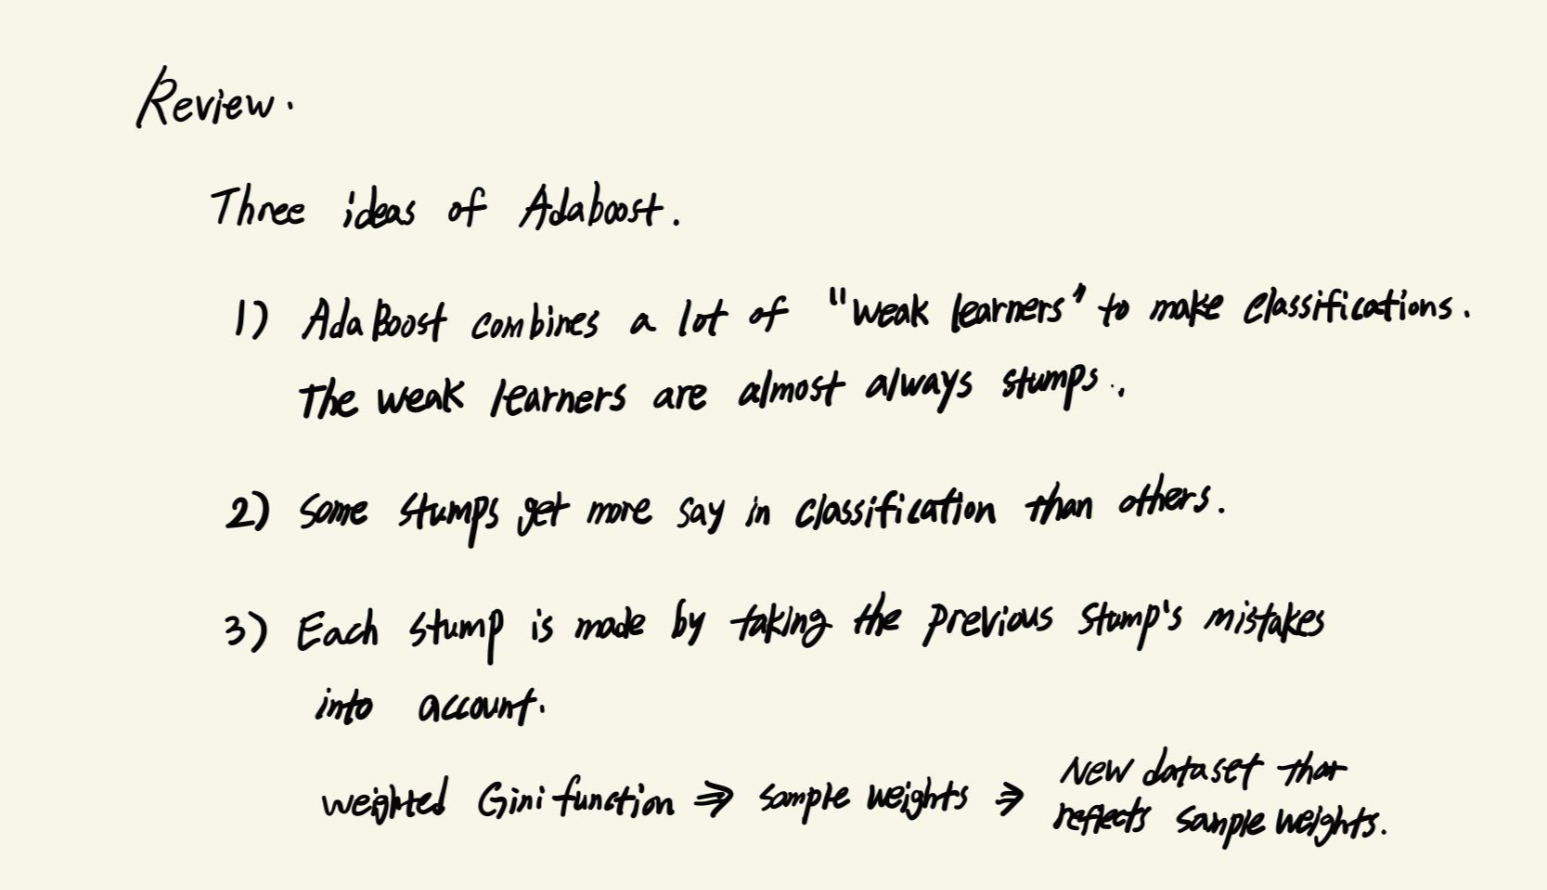 Review.
Three ideas of Adaboost.
1) AdaBoost combines a lot of "weak learners" to make classifications.
The weak learners are almost always stumps.
2) Some stumps get more say in classification than others.
3) Each stump is made by taking the previous stump's mistakes
into account.
weighted Gini function ⇒ sample weights ⇒ New dataset that
reflects sample weights.